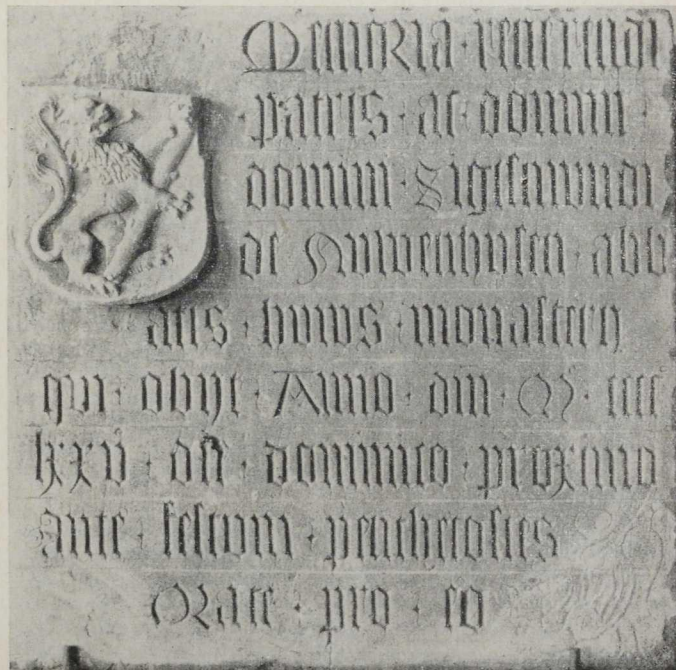 Memoria · reverendi
· patris · ac · domini ·
domini · Sigismundi
de Nuwenhusen · abb
atis · huius · monasterij
qui · obijt · Anno · din · M · cccc
lxxv · die · dominico · proximo
ante · festum · penthecostes
Orate · pro · eo